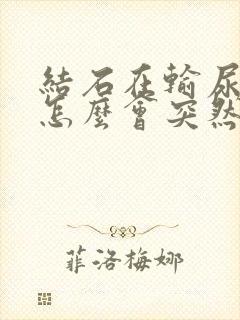 結石在輸尿
怎麼會突然
菲洛梅娜